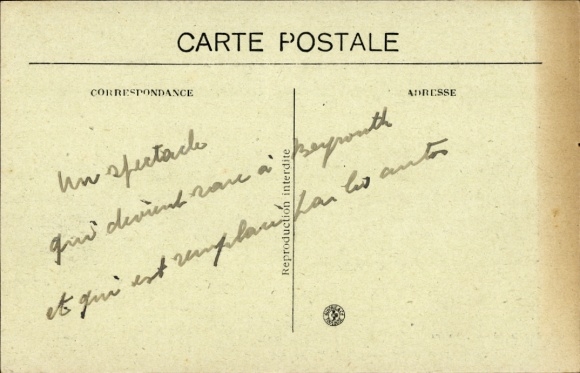 CARTE POSTALE
CORRESPONDANCE
ADRESSE
Un spectacle
qui devient rare à Beyrouth
et qui est remplacé par les autos
Reproduction interdite